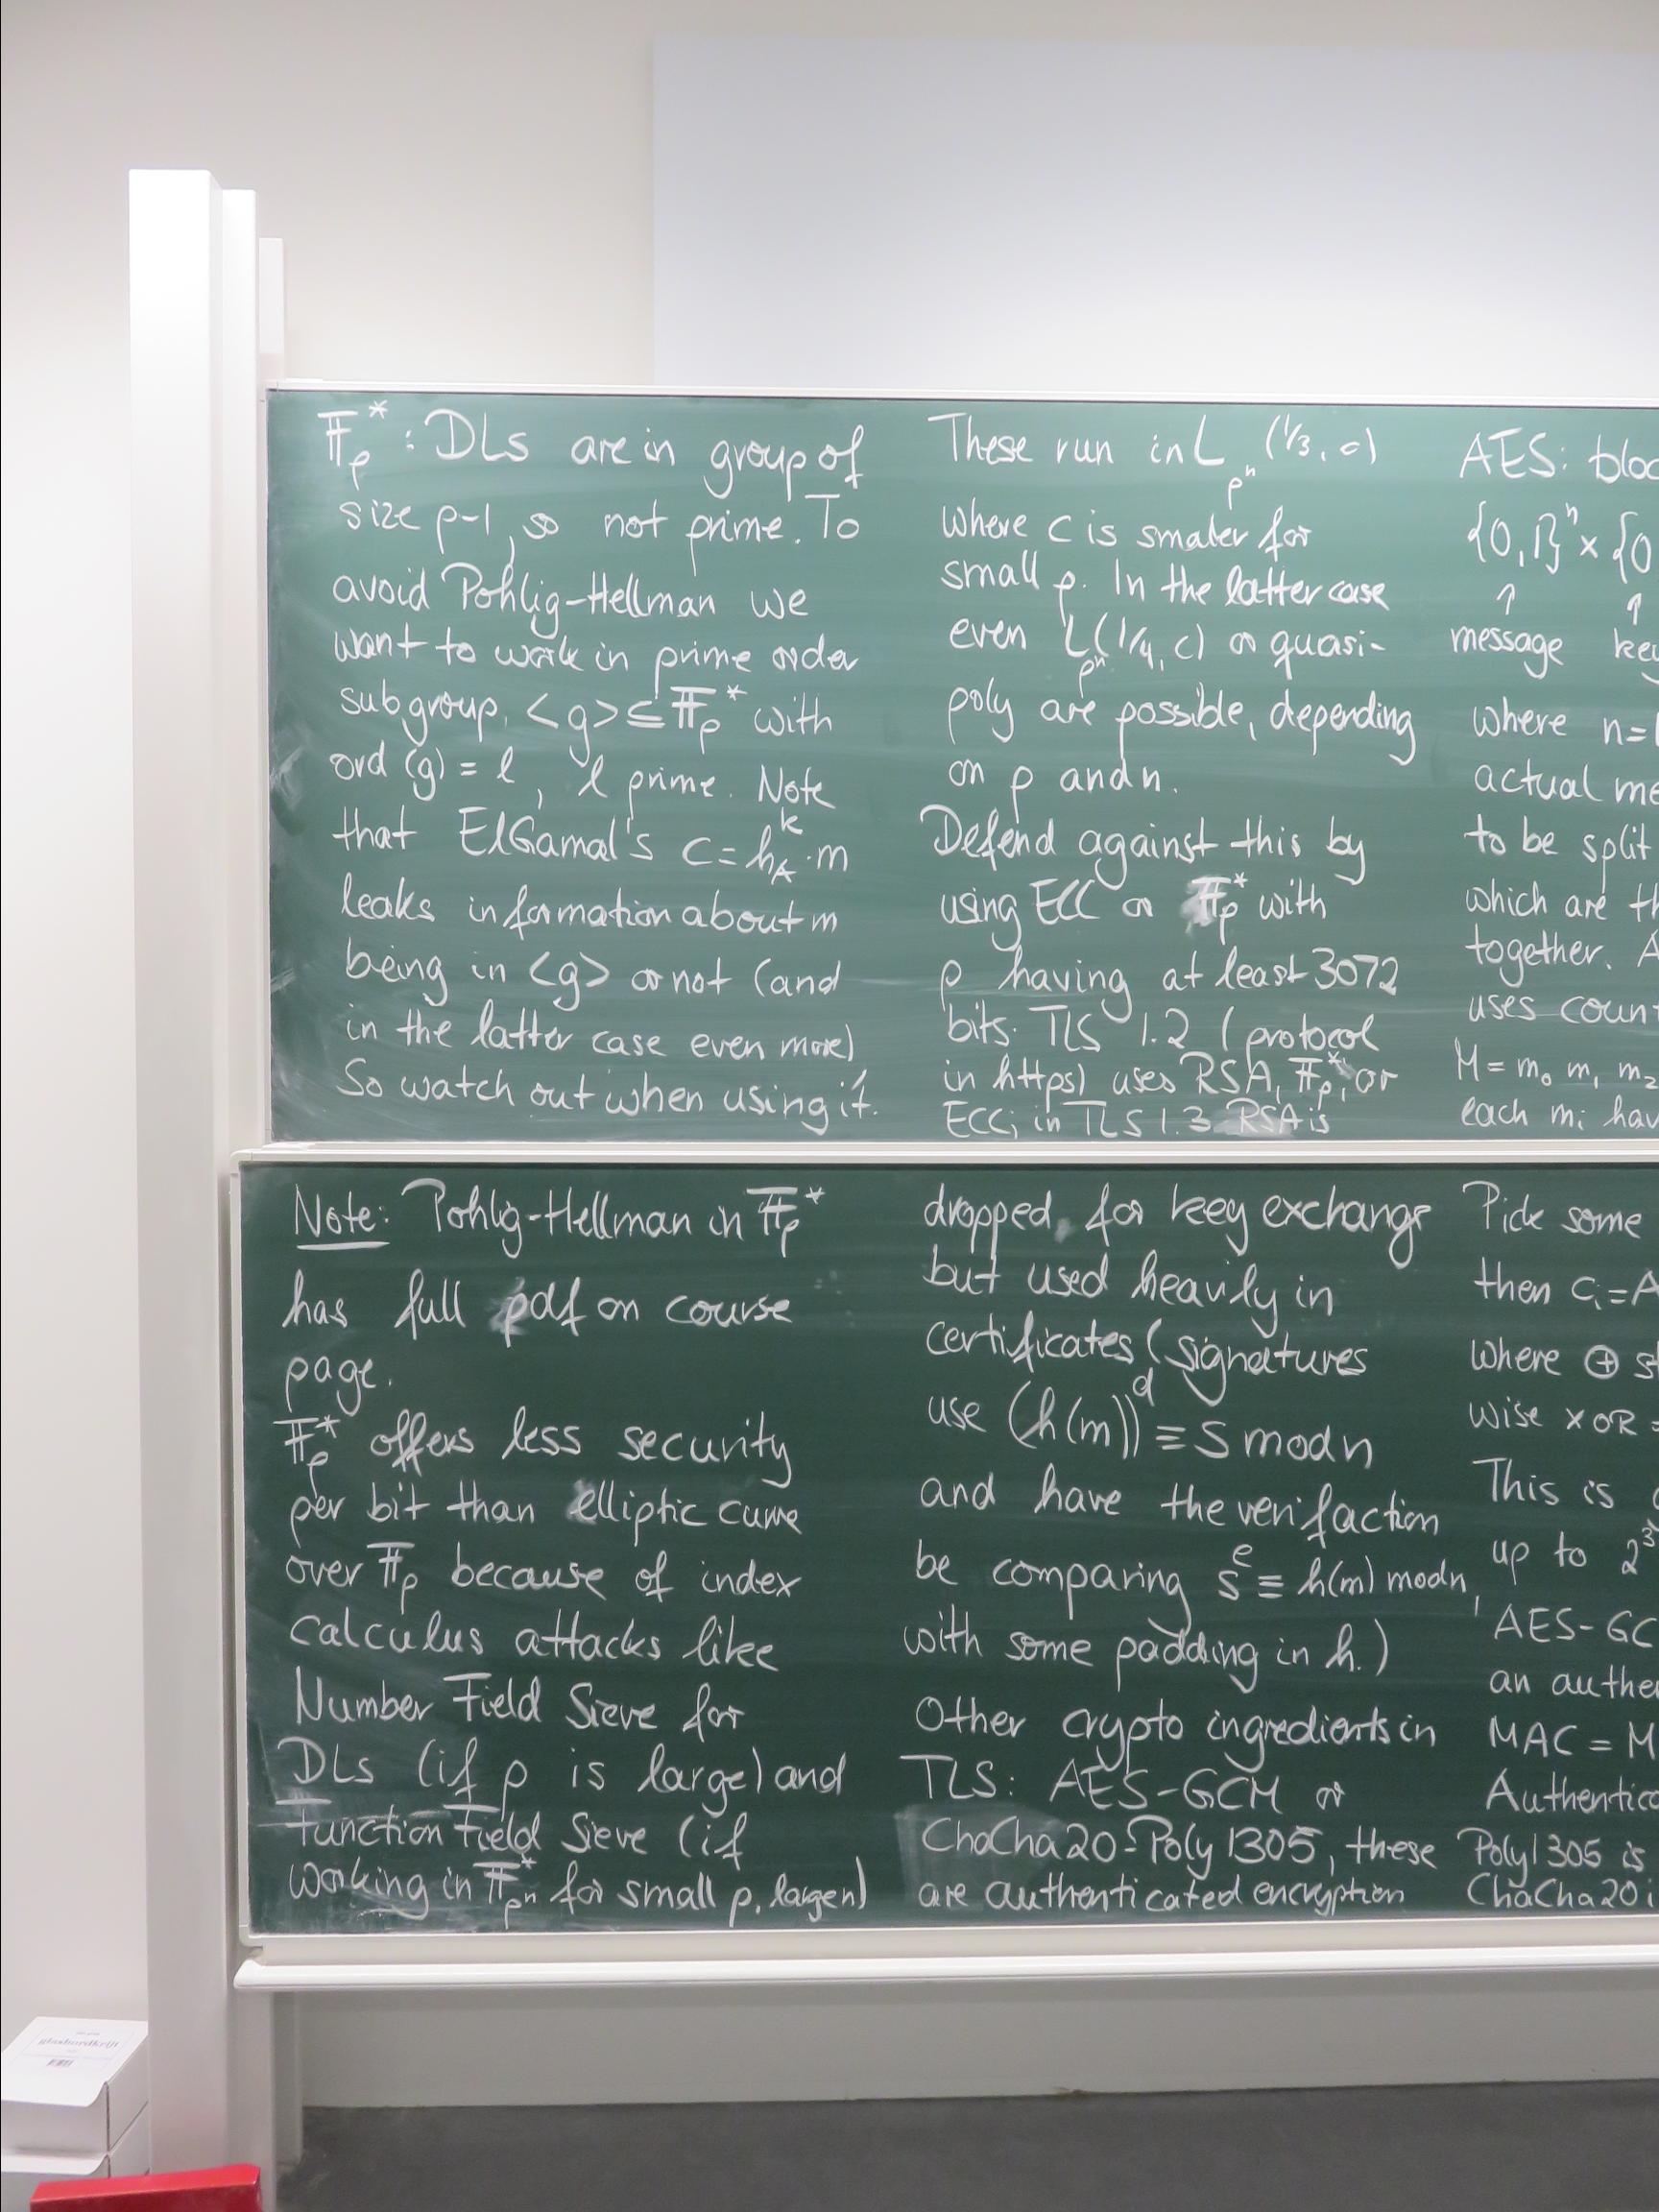 𝔽ₚ*: DLs are in group of
size p-1, so not prime. To
avoid Pohlig-Hellman we
want to work in prime order
subgroup, <g> ⊆ 𝔽ₚ* with
ord (g) = ℓ, ℓ prime. Note
that ElGamal's c = h_A^k · m
leaks information about m
being in <g> or not (and
in the latter case even more)
So watch out when using it.
Note: Pohlig-Hellman in 𝔽ₚ*
has full pdf on course
page.
𝔽ₚ* offers less security
per bit than elliptic curve
over 𝔽ₚ because of index
calculus attacks like
Number Field Sieve for
DLs (if p is large) and
Function Field Sieve (if
working in 𝔽_{pⁿ}* for small p, large n)
These run in L_{pⁿ} (1/3, c)
where c is smaller for
small p. In the latter case
even L_{pⁿ}(1/4, c) or quasi-
poly are possible, depending
on p and n.
Defend against this by
using ECC or 𝔽ₚ* with
p having at least 3072
bits. TLS 1.2 (protocol
in https) uses RSA, 𝔽ₚ*, or
ECC; in TLS 1.3 RSA is
dropped for keey exchange
but used heavily in
certificates (signatures
use (h(m))^d ≡ s mod n
and have the verifaction
be comparing s^e ≡ h(m) mod n,
with some padding in h.)
Other crypto ingredients in
TLS: AES-GCM or
ChaCha20-Poly1305, these
are authenticated encryption
AES: bloc
{0,1}ⁿ × {0
↑ ↑
message key
where n=
actual me
to be split
which are th
together. A
uses count
M = m₀ m₁ m₂
each mᵢ hav
Pick some
then cᵢ = A
where ⊕ s
wise XOR =
This is
up to 2³
AES-GC
an authe
MAC = M
Authentica
Poly1305 is
ChaCha20 i
glasbordkrijt